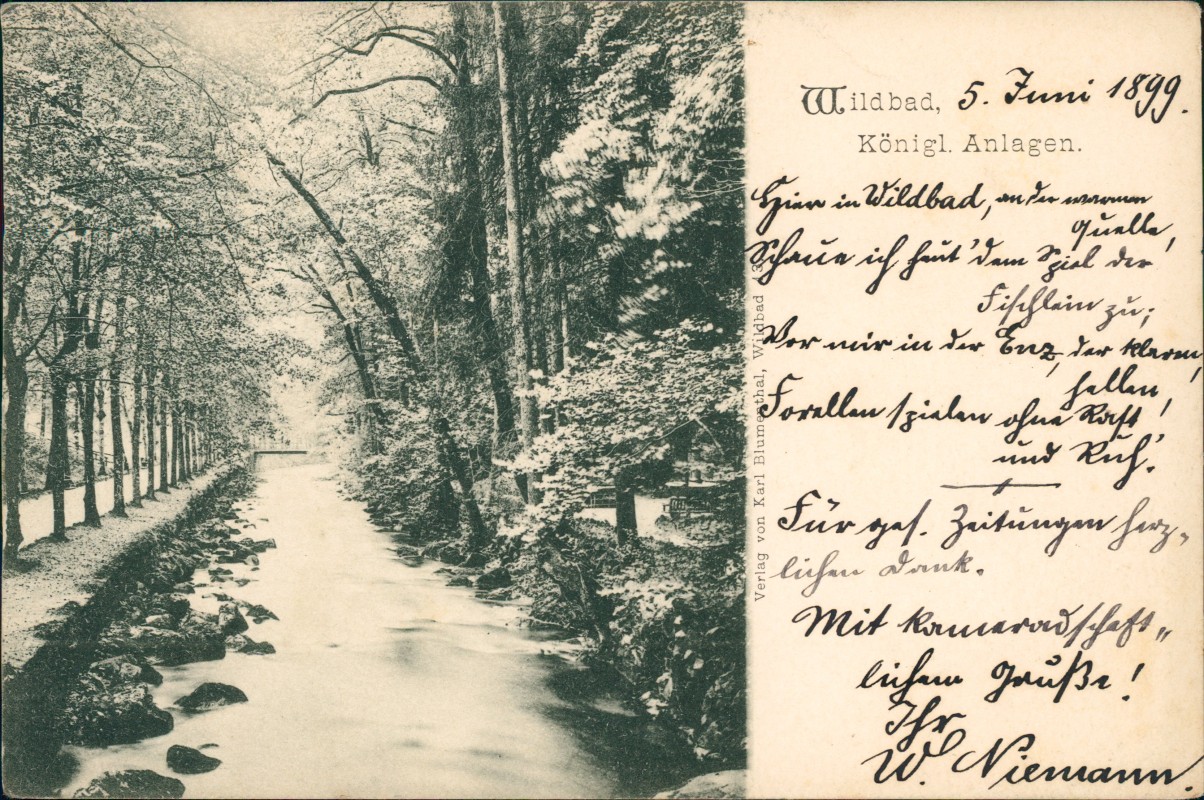 Wildbad, 5. Juni 1899.
Königl. Anlagen.
Hier in Wildbad, an der warmen
Quelle,
Schaue ich heut' dem Spiel der
Fischlein zu;
Vor mir in der Enz, der klaren,
hellen,
Forellen spielen ohne Rast
und Ruh'.
Für gef. Zeitungen herz-
lichen Dank.
Mit kameradschaft-
lichem Gruße!
Ihr
W. Niemann.
Verlag von Karl Blumenthal, Wildbad